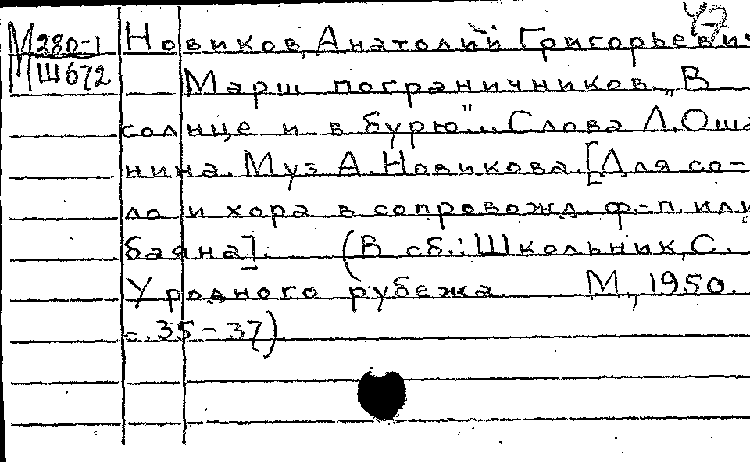 47
М280-1
Ш672
Новиков, Анатолий Григорьевич
Марш пограничников „В
солнце и в бурю"... Слова Л. Оша
нина. Муз А. Новикова. [Для со-
ло и хора в сопровожд ф-п. или
баяна]. (В сб.: Школьник, С.
У родного рубежа М, 1950.
с. 35-37)